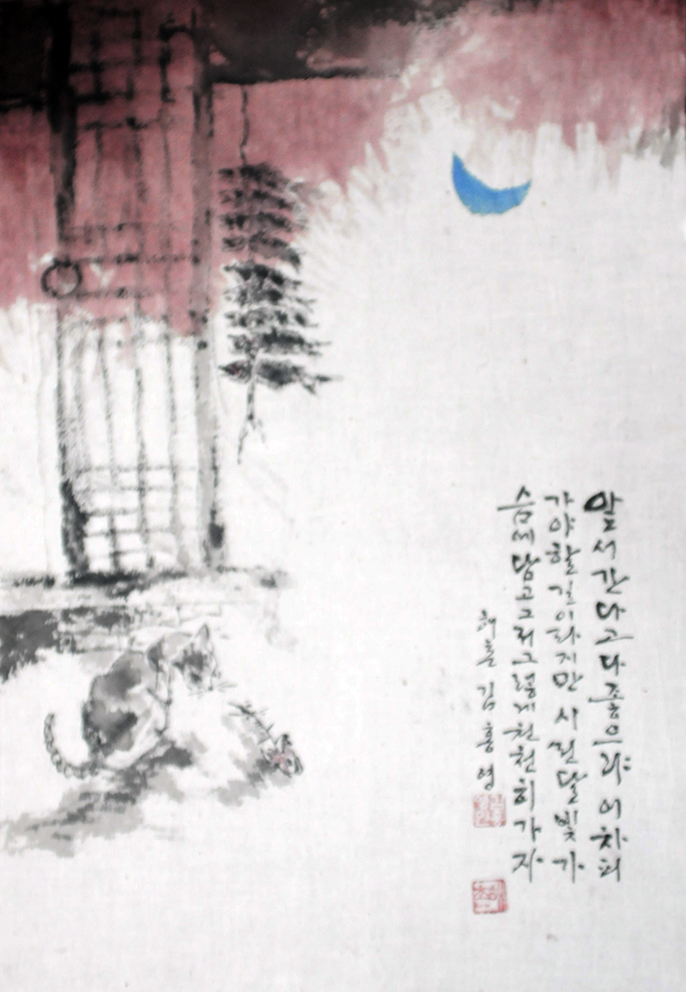 앞서간다고 다 좋으랴 어차피
가야할 길이라지만 시린 달빛 가
슴에 담고 그저그렇게 천천히 가자
김